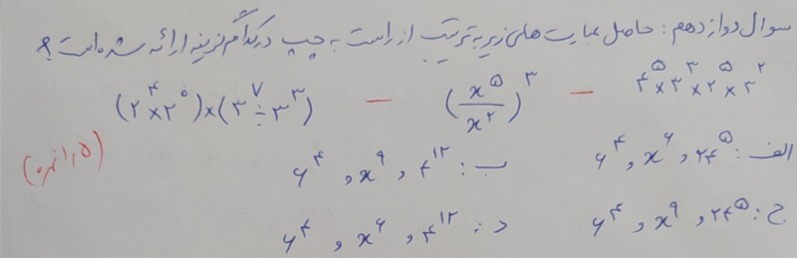 سوال دوازدهم: حاصل عبارت های زیر به ترتیب از راست به چپ در کدام گزینه ارائه شده است؟
۴^۵ × ۳^۳ × ۲^۵ × ۳^۲ – (x^۵ / x^۲)^۳ – (۲^۴ × ۲^۰) × (۳^۷ ÷ ۳^۳)
الف: ۲۴^۵ , x^۶ , ۶^۴ ب: ۴^۱۲ , x^۹ , ۶^۴
ج: ۲۴^۵ , x^۹ , ۶^۴ د: ۴^۱۲ , x^۶ , ۶^۴
(۱,۵ نمره)